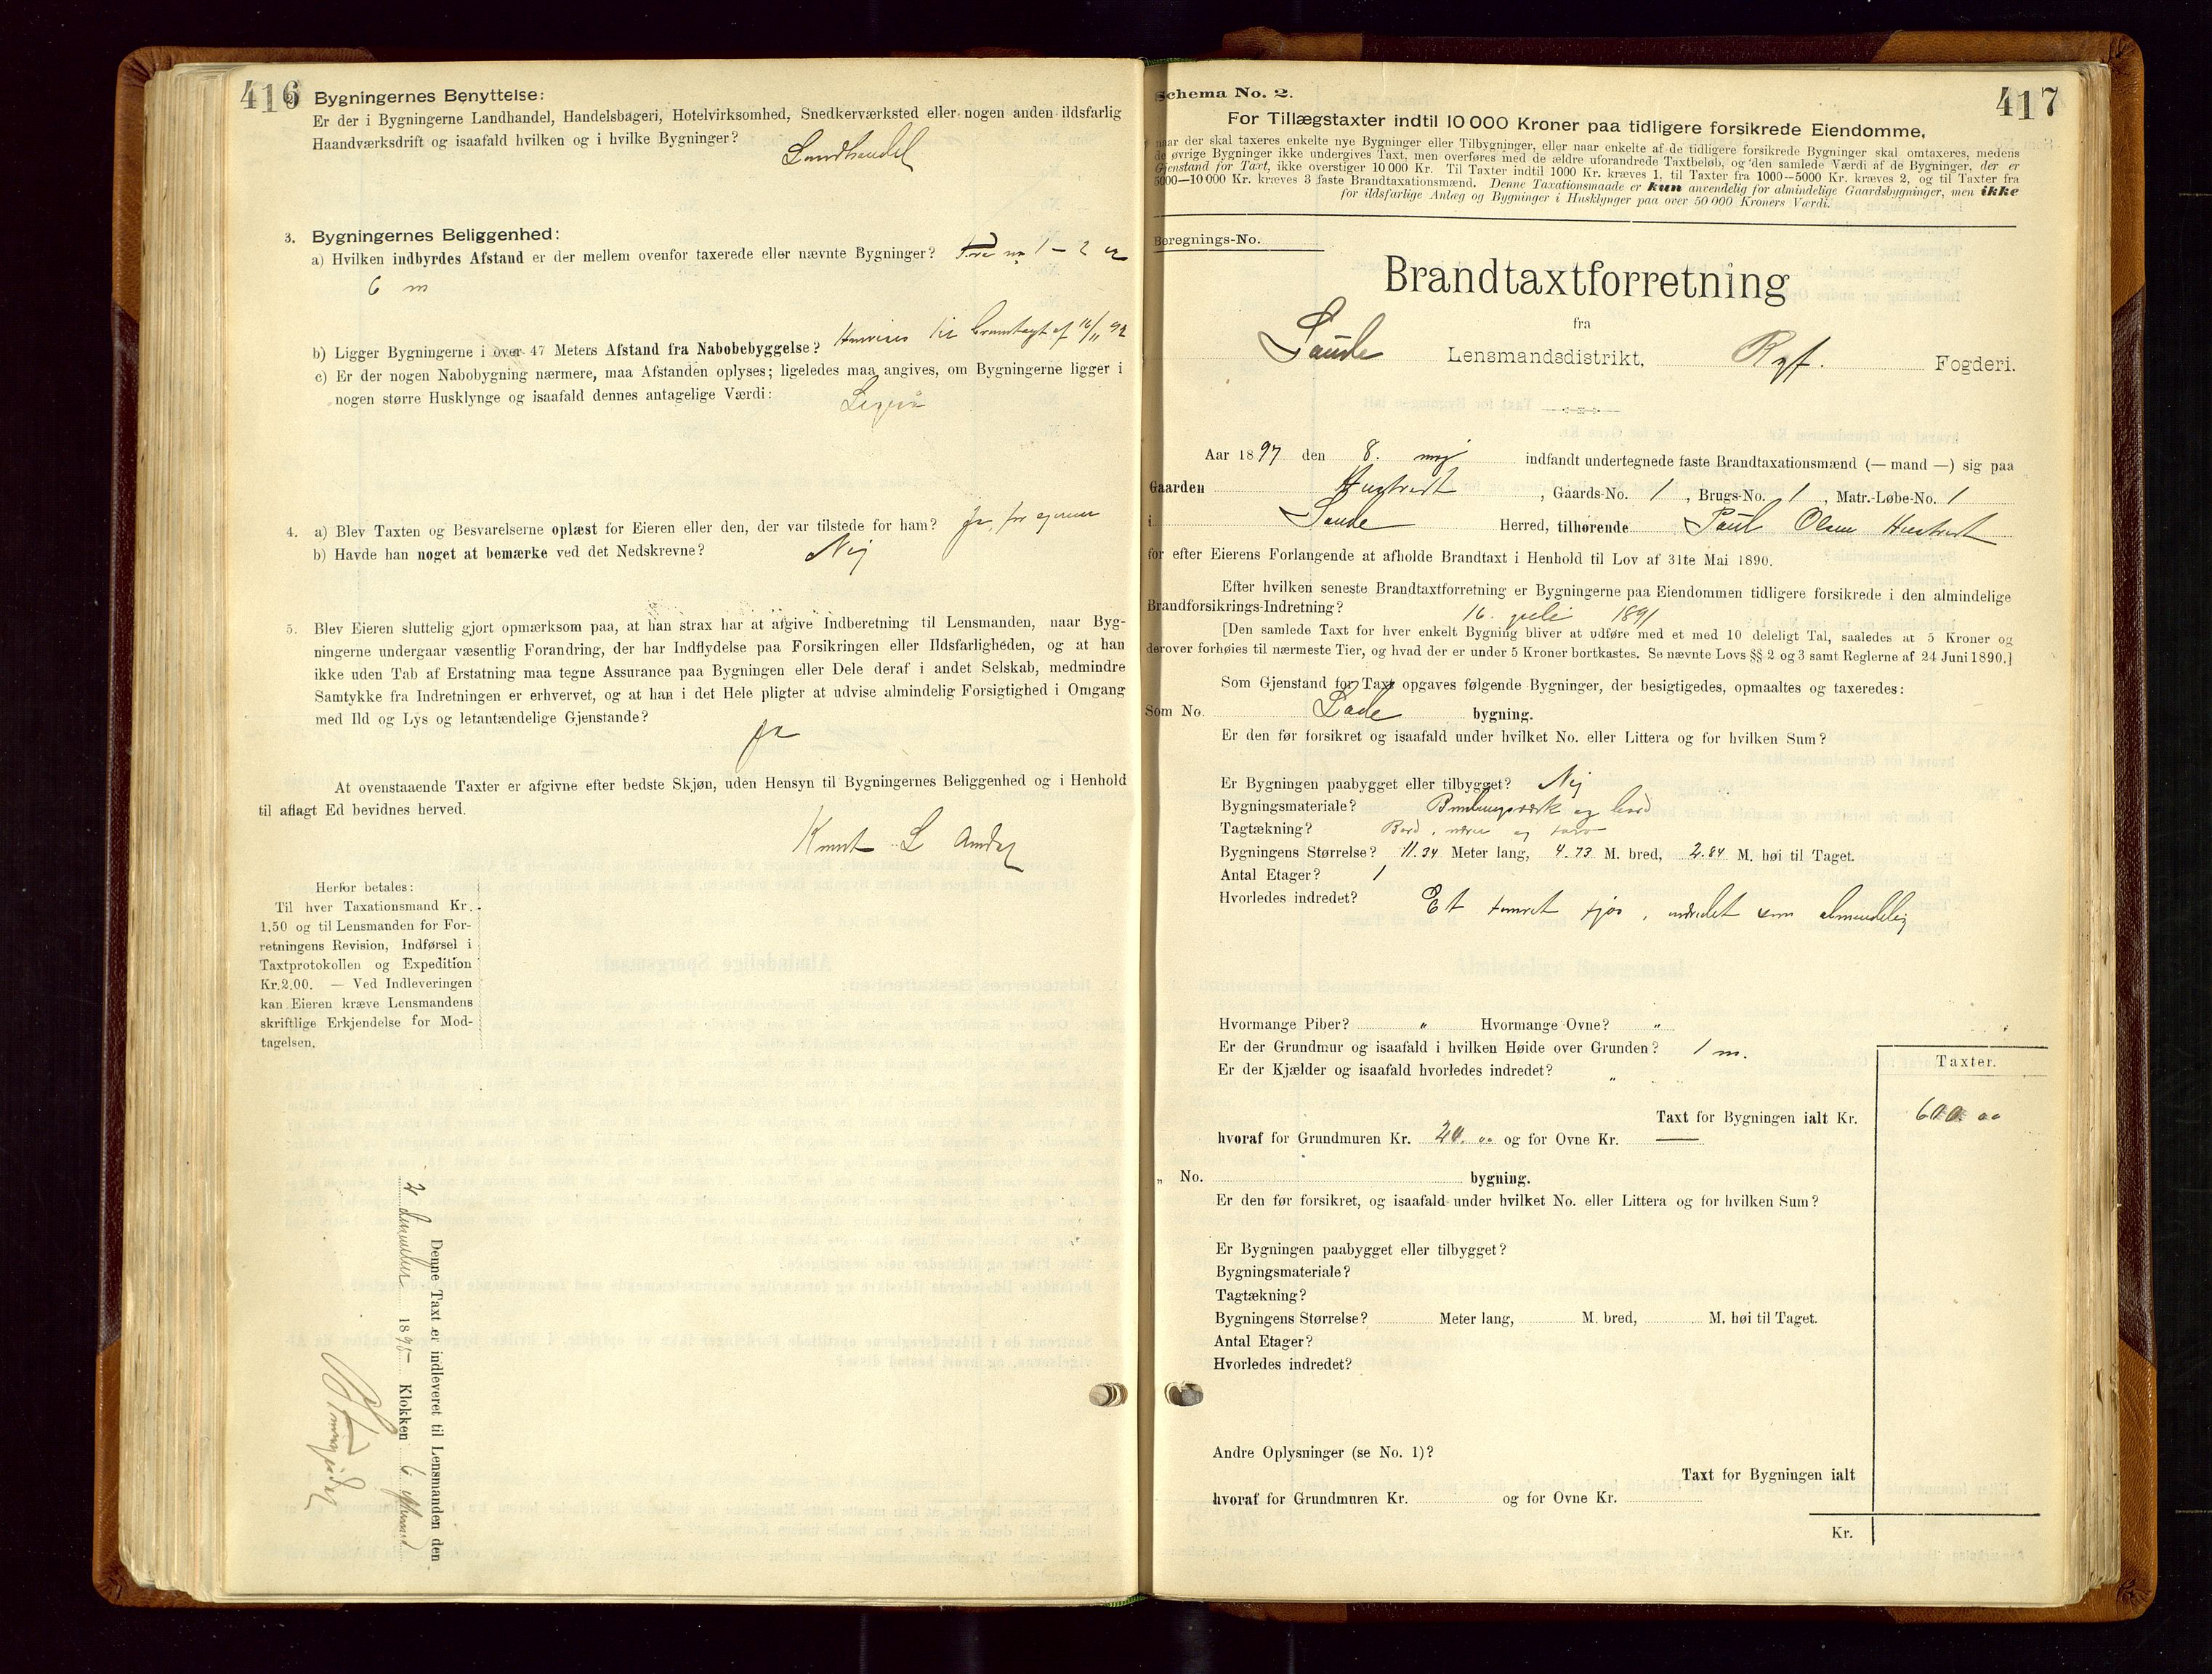 416
Bygningernes Benyttelse:
Er der i Bygningerne Landhandel, Handelsbageri, Hotelvirksomhed, Snedkerværksted eller nogen anden ildsfarlig
Haandværksdrift og isaafald hvilken og i hvilke Bygninger?
Landhandel
3. Bygningernes Beliggenhed:
a) Hvilken indbyrdes Afstand er der mellem ovenfor taxerede eller nævnte Bygninger? Fra no 1 - 2 er
6 m
b) Ligger Bygningerne i over 47 Meters Afstand fra Nabobebyggelse? Henvises til brandtaxt af 16/11 92
c) Er der nogen Nabobygning nærmere, maa Afstanden oplyses; ligeledes maa angives, om Bygningerne ligger i
nogen større Husklynge og isaafald dennes antagelige Værdi: Ligesaa
4. a) Blev Taxten og Besvarelserne oplæst for Eieren eller den, der var tilstede for ham? Ja, for eieren
b) Havde han noget at bemærke ved det Nedskrevne? Nei
5. Blev Eieren sluttelig gjort opmærksom paa, at han strax har at afgive Indberetning til Lensmanden, naar Byg-
ningerne undergaar væsentlig Forandring, der har Indflydelse paa Forsikringen eller Ildsfarligheden, og at han
ikke uden Tab af Erstatning maa tegne Assurance paa Bygningen eller Dele deraf i andet Selskab, medmindre
Samtykke fra Indretningen er erhvervet, og at han i det Hele pligter at udvise almindelig Forsigtighed i Omgang
med Ild og Lys og letantændelige Gjenstande?
Ja
At ovenstaaende Taxter er afgivne efter bedste Skjøn, uden Hensyn til Bygningernes Beliggenhed og i Henhold
til aflagt Ed bevidnes herved.
Knut L Amdal
Herfor betales:
Til hver Taxationsmand Kr.
1.50 og til Lensmanden for For-
retningens Revision, Indførsel i
Taxtprotokollen og Expedition
Kr. 2.00. — Ved Indleveringen
kan Eieren kræve Lensmandens
skriftlige Erkjendelse for Mod-
tagelsen.
Denne Taxt er indleveret til Lensmanden den
2 december 1895 Klokken 6 efterm
417
Schema No. 2.
For Tillægstaxter indtil 10 000 Kroner paa tidligere forsikrede Eiendomme,
naar der skal taxeres enkelte nye Bygninger eller Tilbygninger, eller naar enkelte af de tidligere forsikrede Bygninger skal omtaxeres, medens
de øvrige Bygninger ikke undergives Taxt, men overføres med de ældre uforandrede Taxtbeløb, og den samlede Værdi af de Bygninger, der er
Gjenstand for Taxt, ikke overstiger 10 000 Kr. Til Taxter indtil 1000 Kr. kræves 1, til Taxter fra 1000—5000 Kr. kræves 2, og til Taxter fra
5000—10 000 Kr. kræves 3 faste Brandtaxationsmænd. Denne Taxationsmaade er kun anvendelig for almindelige Gaardsbygninger, men ikke
for ildsfarlige Anlæg og Bygninger i Husklynger paa over 50 000 Kroners Værdi.
Beregnings-No.
Brandtaxtforretning
fra
Saude Lensmandsdistrikt, Ryf. Fogderi.
Aar 1897 den 8. maj indfandt undertegnede faste Brandtaxationsmænd (— mand —) sig paa
Gaarden Hustvedt, Gaards-No. 1, Brugs-No. 1, Matr.-Løbe-No. 1
i Saude Herred, tilhørende Paul Olsen Hustvedt
for efter Eierens Forlangende at afholde Brandtaxt i Henhold til Lov af 31te Mai 1890.
Efter hvilken seneste Brandtaxtforretning er Bygningerne paa Eiendommen tidligere forsikrede i den almindelige
Brandforsikrings-Indretning? 16. juli 1891
[Den samlede Taxt for hver enkelt Bygning bliver at udføre med et med 10 deleligt Tal, saaledes at 5 Kroner og
derover forhøies til nærmeste Tier, og hvad der er under 5 Kroner bortkastes. Se nævnte Lovs §§ 2 og 3 samt Reglerne af 24 Juni 1890.]
Som Gjenstand for Taxt opgaves følgende Bygninger, der besigtigedes, opmaaltes og taxeredes:
Som No. Lade bygning.
Er den før forsikret og isaafald under hvilket No. eller Littera og for hvilken Sum?
Er Bygningen paabygget eller tilbygget? Nej
Bygningsmateriale? Bindingsværk og bord
Tagtækning? Bord, næver og torv
Bygningens Størrelse? 11.34 Meter lang, 4.73 M. bred, 2.84 M. høi til Taget.
Antal Etager? 1
Hvorledes indredet? Et tømret fjøs, indredet som almindelig
Hvormange Piber? " Hvormange Ovne? "
Er der Grundmur og isaafald i hvilken Høide over Grunden? 1 m.
Er der Kjælder og isaafald hvorledes indredet? "
Taxter.
Taxt for Bygningen ialt Kr. 600 00
hvoraf for Grundmuren Kr. 20. 00 og for Ovne Kr. —
" No. bygning.
Er den før forsikret, og isaafald under hvilket No. eller Littera og for hvilken Sum?
Er Bygningen paabygget eller tilbygget?
Bygningsmateriale?
Tagtækning?
Bygningens Størrelse? Meter lang, M. bred, M. høi til Taget.
Antal Etager?
Hvorledes indredet?
Andre Oplysninger (se No. 1)?
Taxt for Bygningen ialt
hvoraf for Grundmuren Kr. og for Ovne Kr.
Kr.